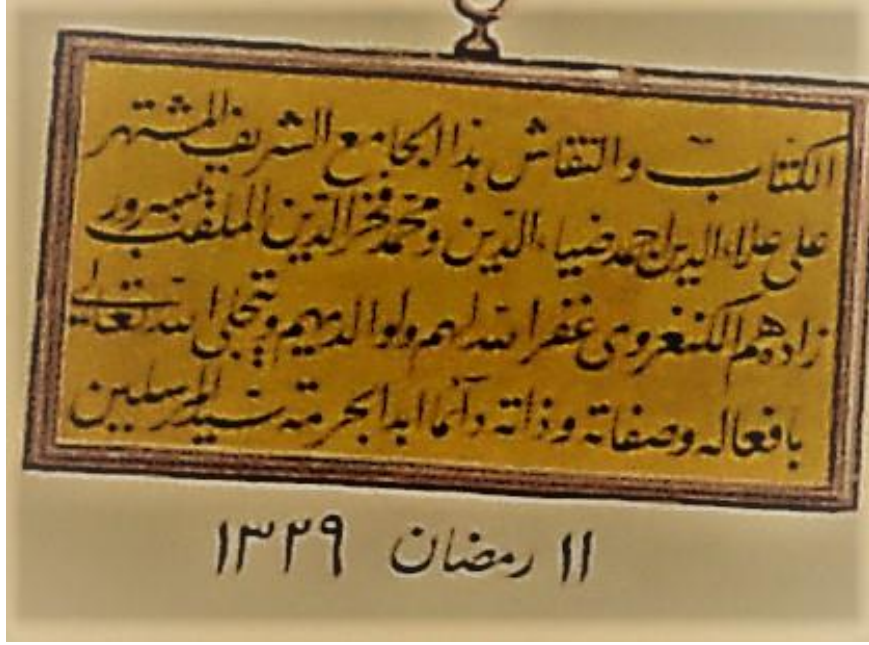 الكتاب والنقاش بذا الجامع الشريف المشتهر
على علاء الدين احمد ضياء الدين ومحمد فخر الدين الملقب بسرور
زاده هم الكنغروى غفر الله لهم ولوالديهم ويتجلى الله تعالى
بافعاله وصفاته وذاته دآئما ابدا بحرمة سيد المرسلين
١١ رمضان ١٣٢٩